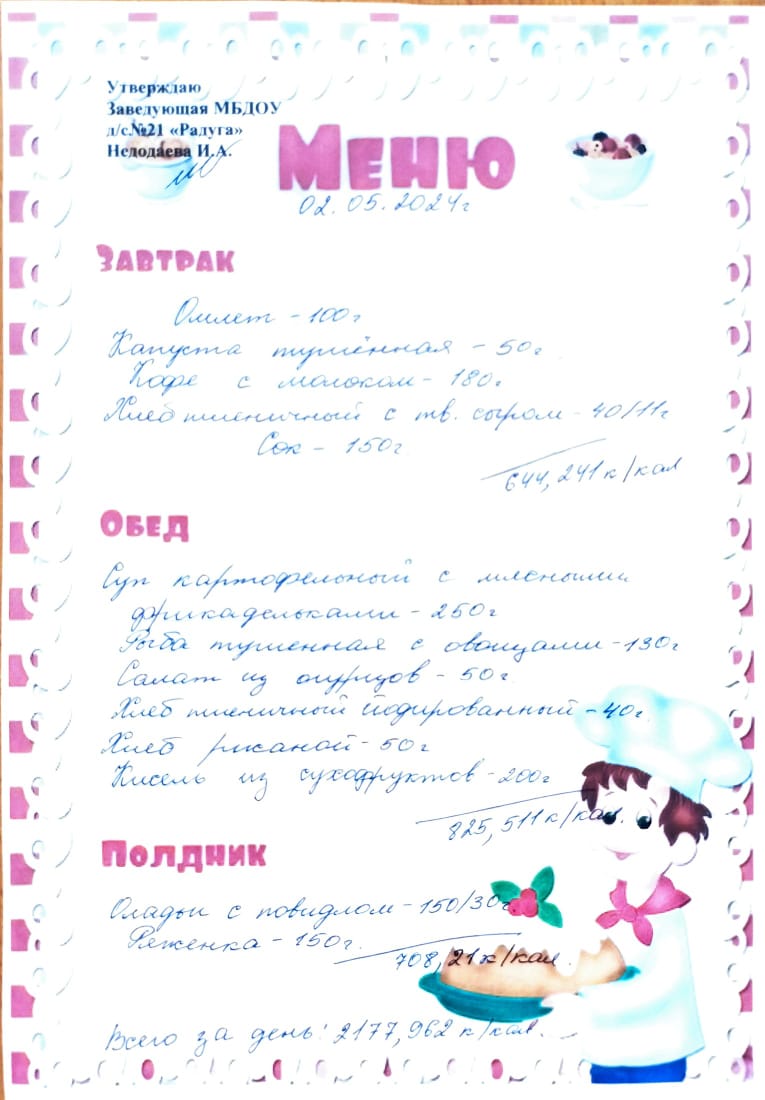 Утверждаю
Заведующая МБДОУ
д/с.№21 «Радуга»
Нелодаева И.А.
МЕНЮ
02.05.2024г
ЗАВТРАК
Омлет - 100г
Капуста тушённая - 50г
Кофе с молоком - 180г
Хлеб пшеничный с тв. сыром - 40/11г
Сок - 150г
644,241 к/кал
ОБЕД
Суп картофельный с мясными
фрикадельками - 250г
Рыба тушенная с овощами - 130г
Салат из огурцов - 50г
Хлеб пшеничный йодированный - 40г
Хлеб ржаной - 50г
Кисель из сухофруктов - 200г
825,511 к/кал.
ПОЛДНИК
Оладьи с повидлом - 150/30г
Ряженка - 150г.
708,21 к/кал.
Всего за день: 2177,962 к/кал.